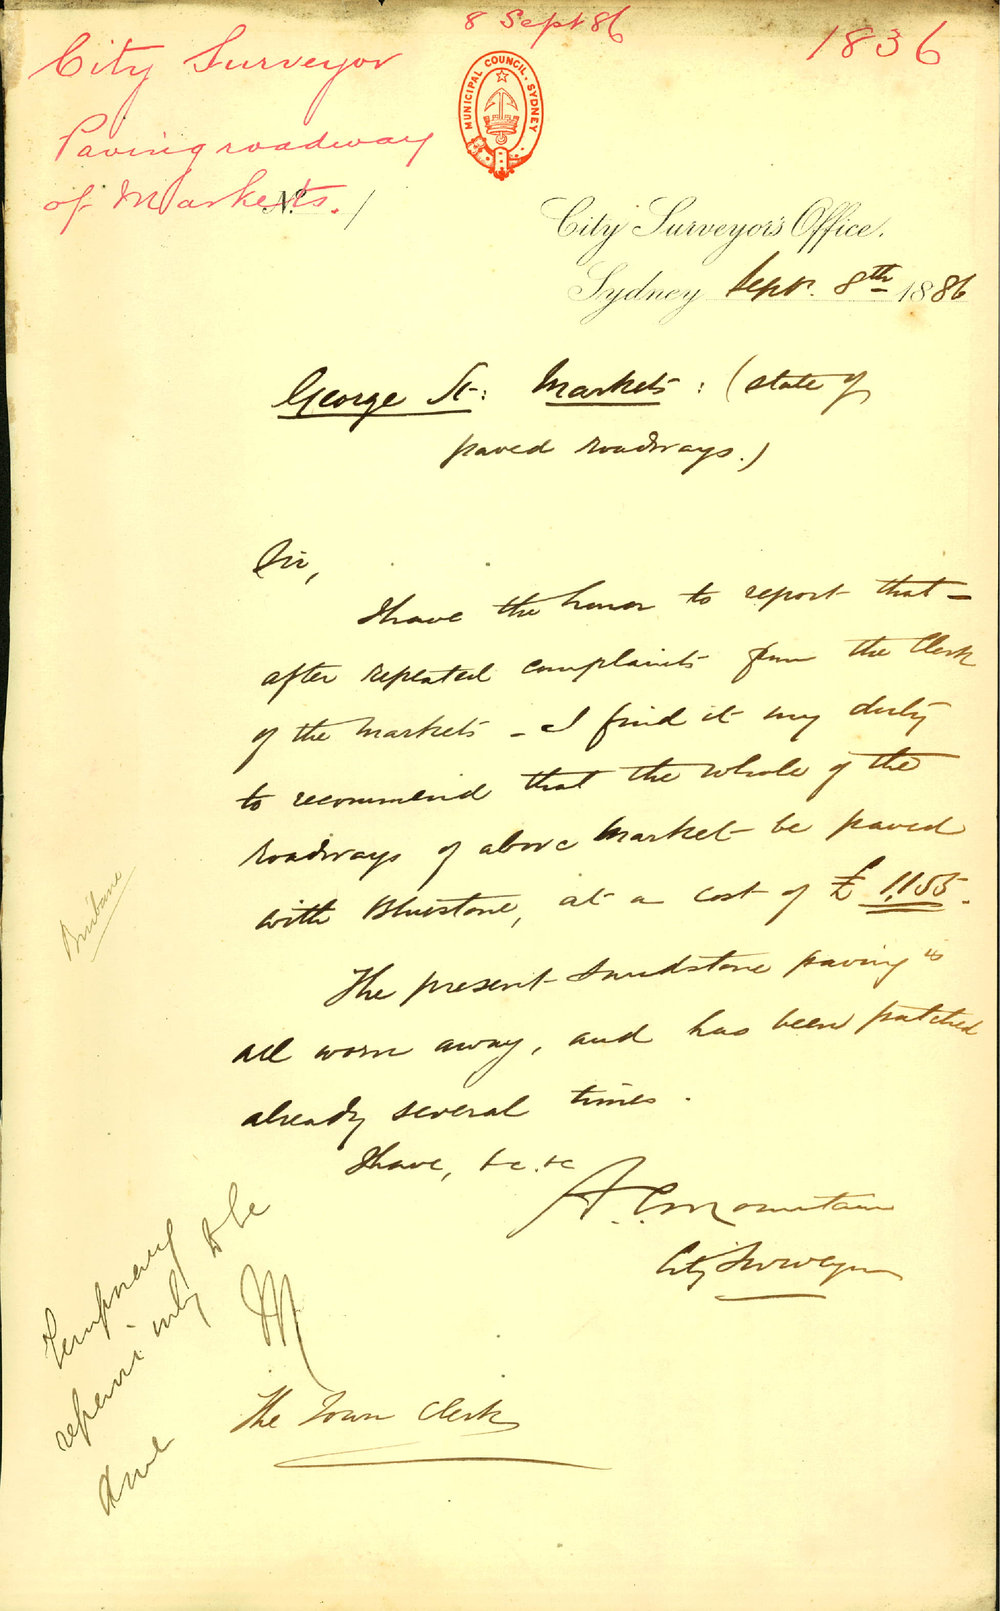 8 Sept 86
1836
City Surveyor
Paving roadway
of Markets.
MUNICIPAL COUNCIL, SYDNEY
No. /
City Surveyor's Office.
Sydney Sept. 8th 1886
George St: Markets: (state of
paved roadways.)
Sir,
I have the honor to report that -
after repeated complaints from the Clerk
of the Markets - I find it my duty
to recommend that the whole of the
roadways of above Market be paved
with Bluestone, at a cost of £1,155.
The present sandstone paving is
all worn away, and has been patched
already several times.
I have, &c. &c
A. C. Mountain
City Surveyor
Brisbane
Temporary
repairs only to be
done
M
The Town Clerk